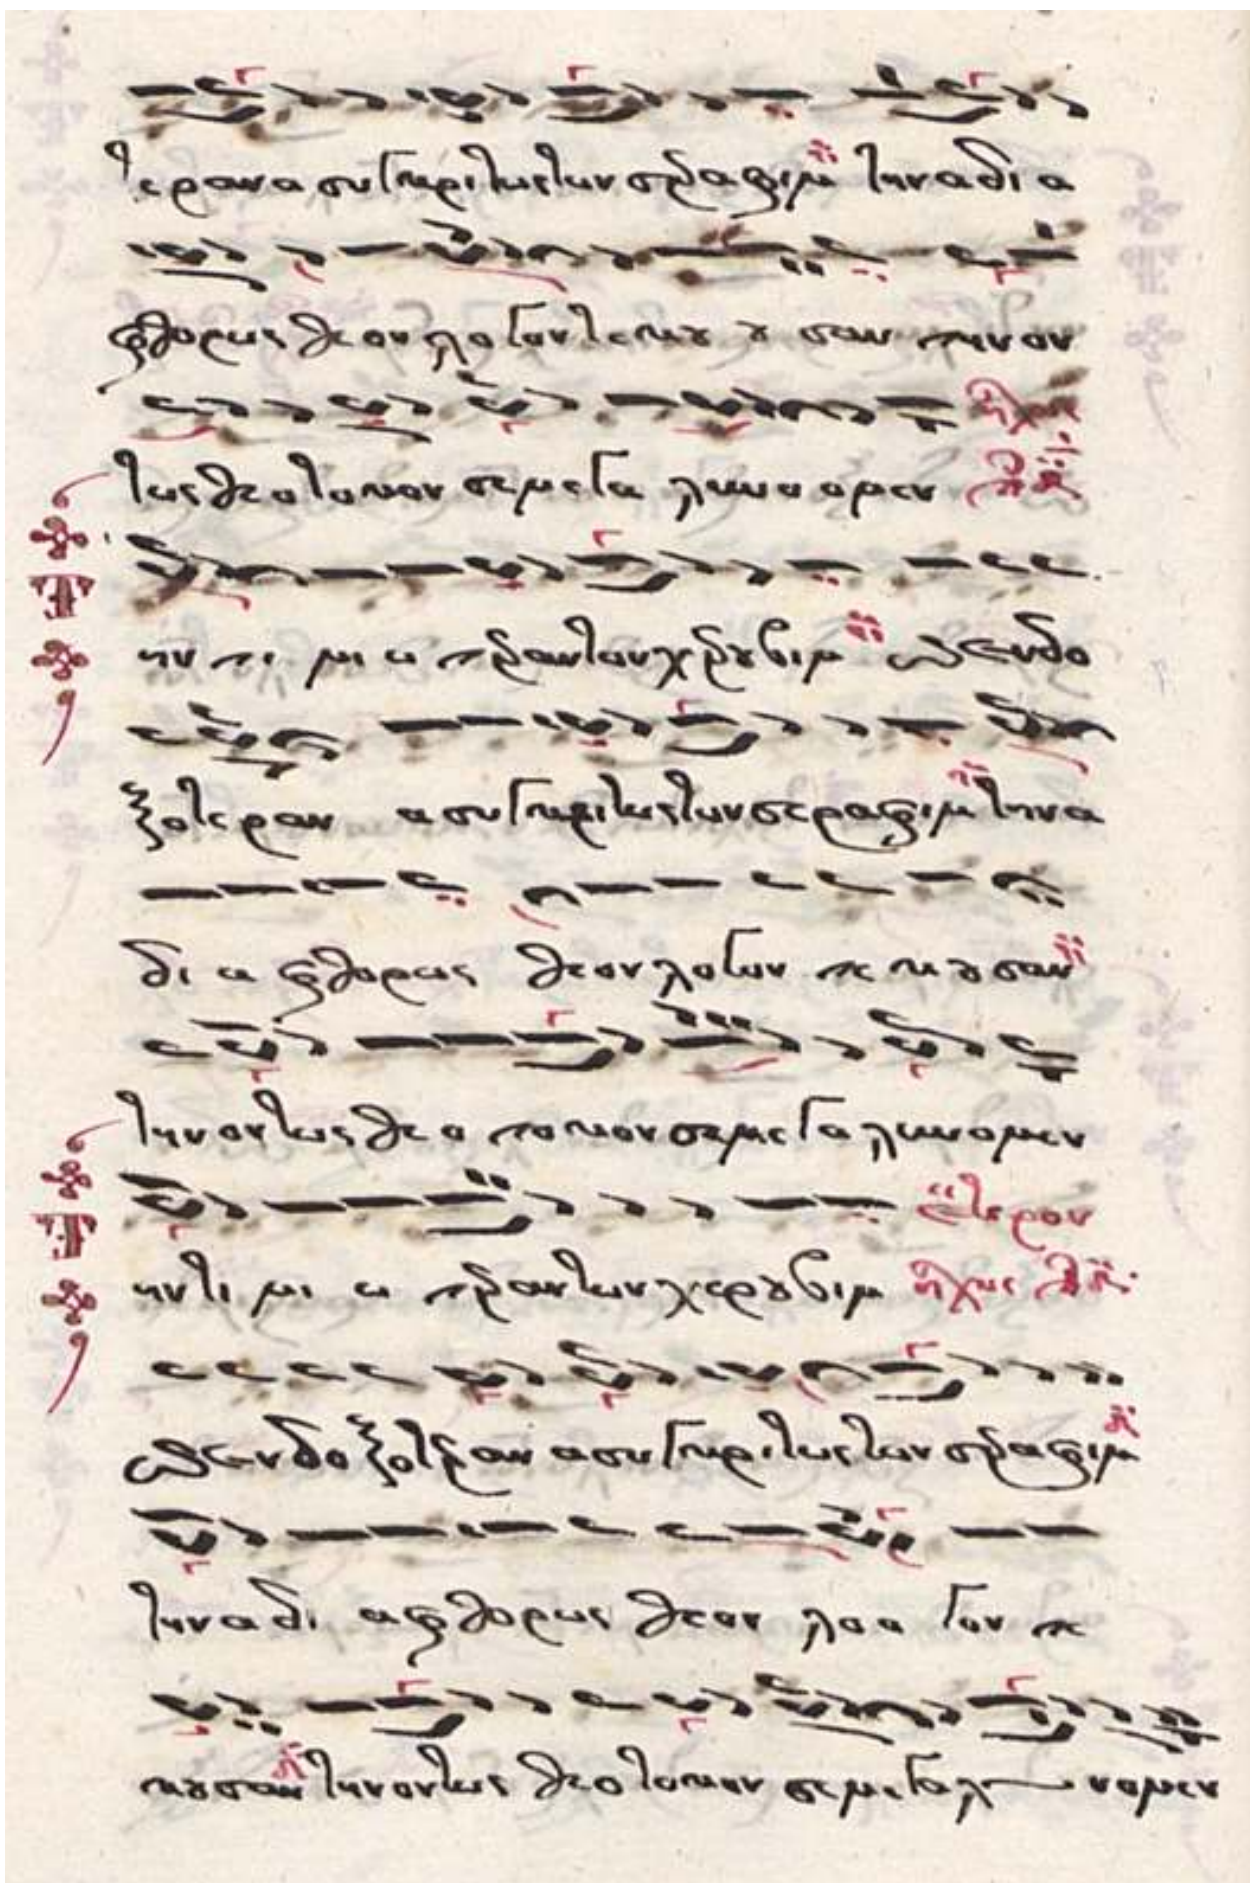 τέραν ασυγκρίτως των σεραφιμ την αδια
φθορως θεον λογον τεκου ου σαν την ον
τως θεοτοκον σε μεγα λυνο ομεν ηχος
ην τι μι ω τεραν των χερουβιμ και ενδο
ξοτεραν ασυγκριτως των σεραφιμ την α
δι α φθορως θεον λογον τε κουσαν
την οντως θε ο τοκον σε με γα λυνομεν
Τ
ην τι μι ω τεραν των χερουβιμ έτερον ηχος
και ενδοξοτεραν ασυγκριτως των σεραφιμ
την αδι αφθορως θεον λοο γον τε
κουσαν την οντως θεοτοκον σε μεγαλυνομεν